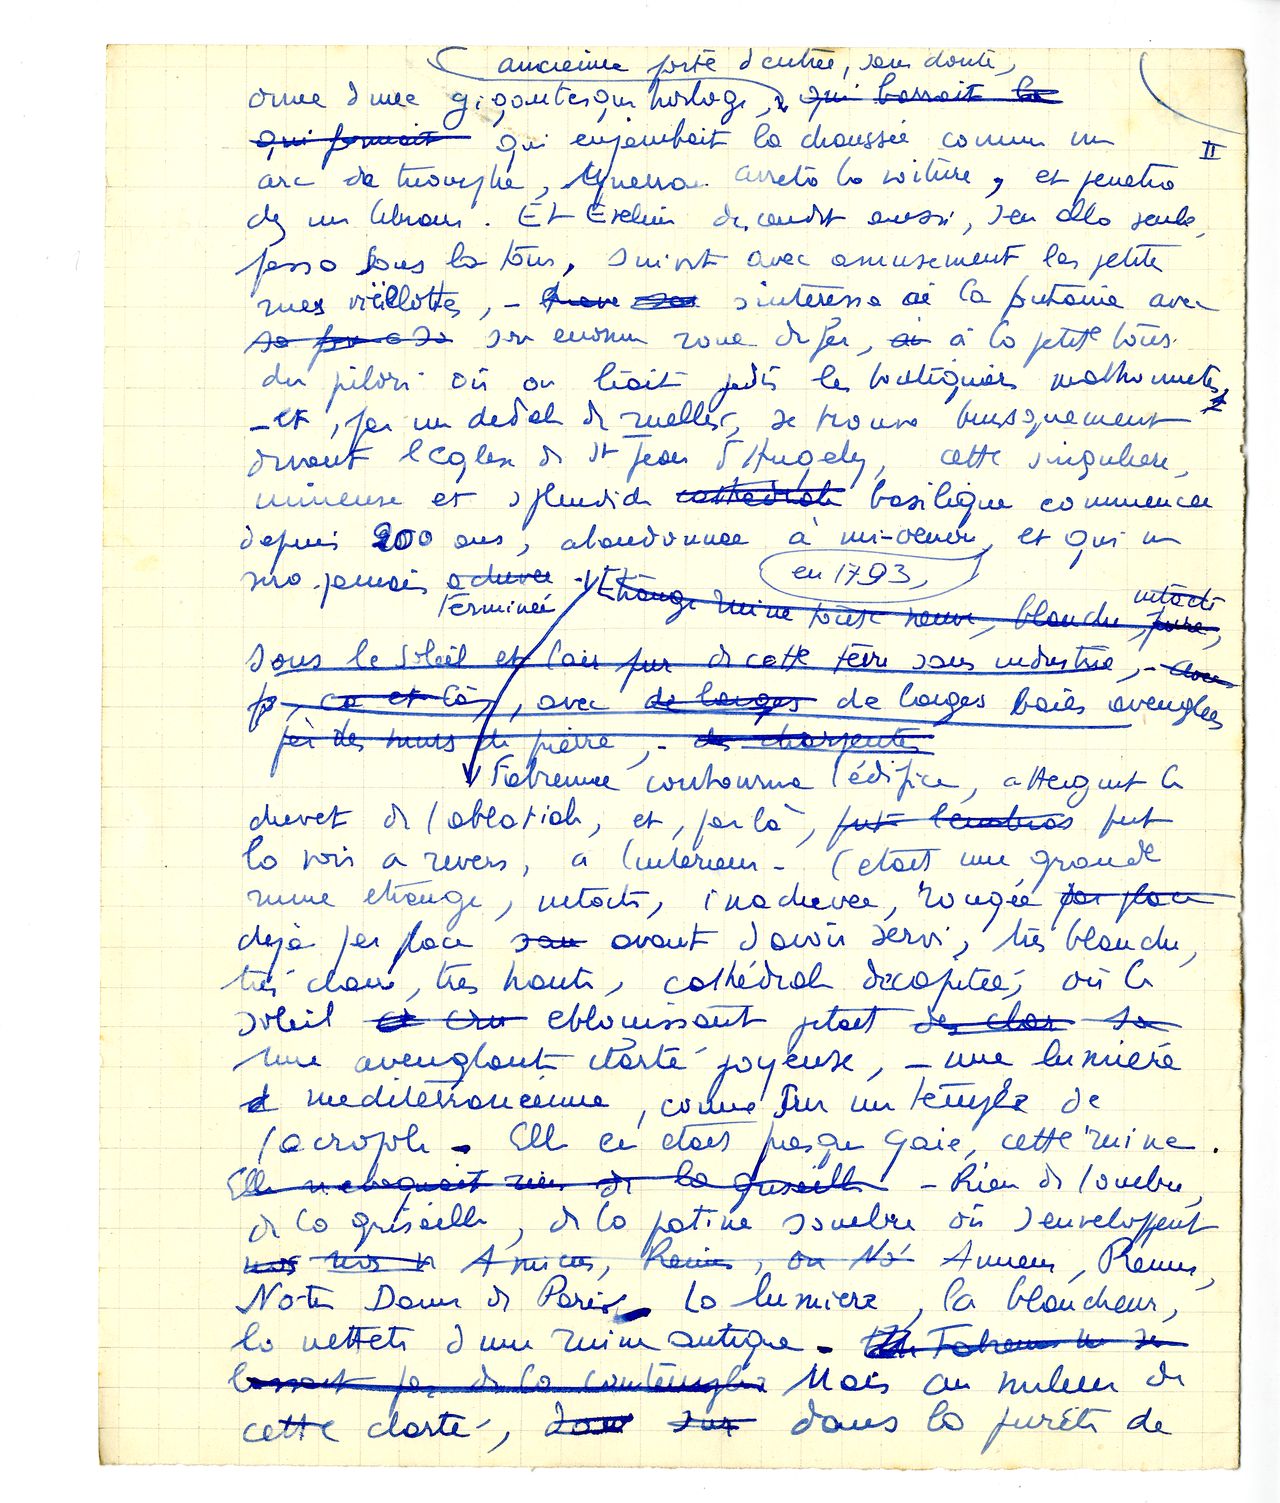 ancienne porte d'entrée, sans doute,
ornée d'une gigantesque horloge, qui barrait la
qui fermait qui enjambait la chaussée comme un
II
arc de triomphe, arrêta la voiture, et pénétra
chez un libraire. Et Evelin descendit aussi, s'en alla seule,
passa sous la tour, suivit avec amusement les petites
rues vieillottes, - s'intéressa à la fontaine avec
son énorme roue de fer, à la petite tour
du pilori où on liait jadis les boutiquiers malhonnêtes,
- et, par un dédale de ruelles, se trouva brusquement
devant l'église de St Jean d'Angely, cette singulière,
ruineuse et splendide cathédrale basilique commencée
depuis 200 ans, abandonnée à mi-oeuvre, et qui ne
en 1793,
sera jamais achevée Etrange ruine toute neuve, blanche, pure,
terminée
intacte
sous le soleil et l'air pur de cette terre sans industrie, - avec
ça et là, avec de larges de larges baies aveuglées
par des murs de pierre, - des charpentes
Fabienne contourna l'édifice, atteignit le
chevet de l'abbatiale, et, par là, put
la voir à revers, à l'intérieur - C'était une grande
ruine étrange, intacte, inachevée, rongée par place
déjà par place avant d'avoir servi, très blanche,
très claire, très haute, cathédrale décapitée, où le
soleil cru éblouissant jetait
une aveuglante clarté joyeuse, - une lumière
méditerranéenne, comme sur un temple de
l'acropole - Elle en était presque gaie, cette ruine.
Elle n'évoquait rien de la grisaille - Rien de l'ombre,
de la grisaille, de la patine sombre où s'enveloppent
nos nos Amiens, Reims, ou No Amiens, Reims,
Notre Dame de Paris. La lumière, la blancheur,
la netteté d'une ruine antique -
lassait pas de la contempler Mais au milieu de
cette clarté, dans sur dans la pureté de